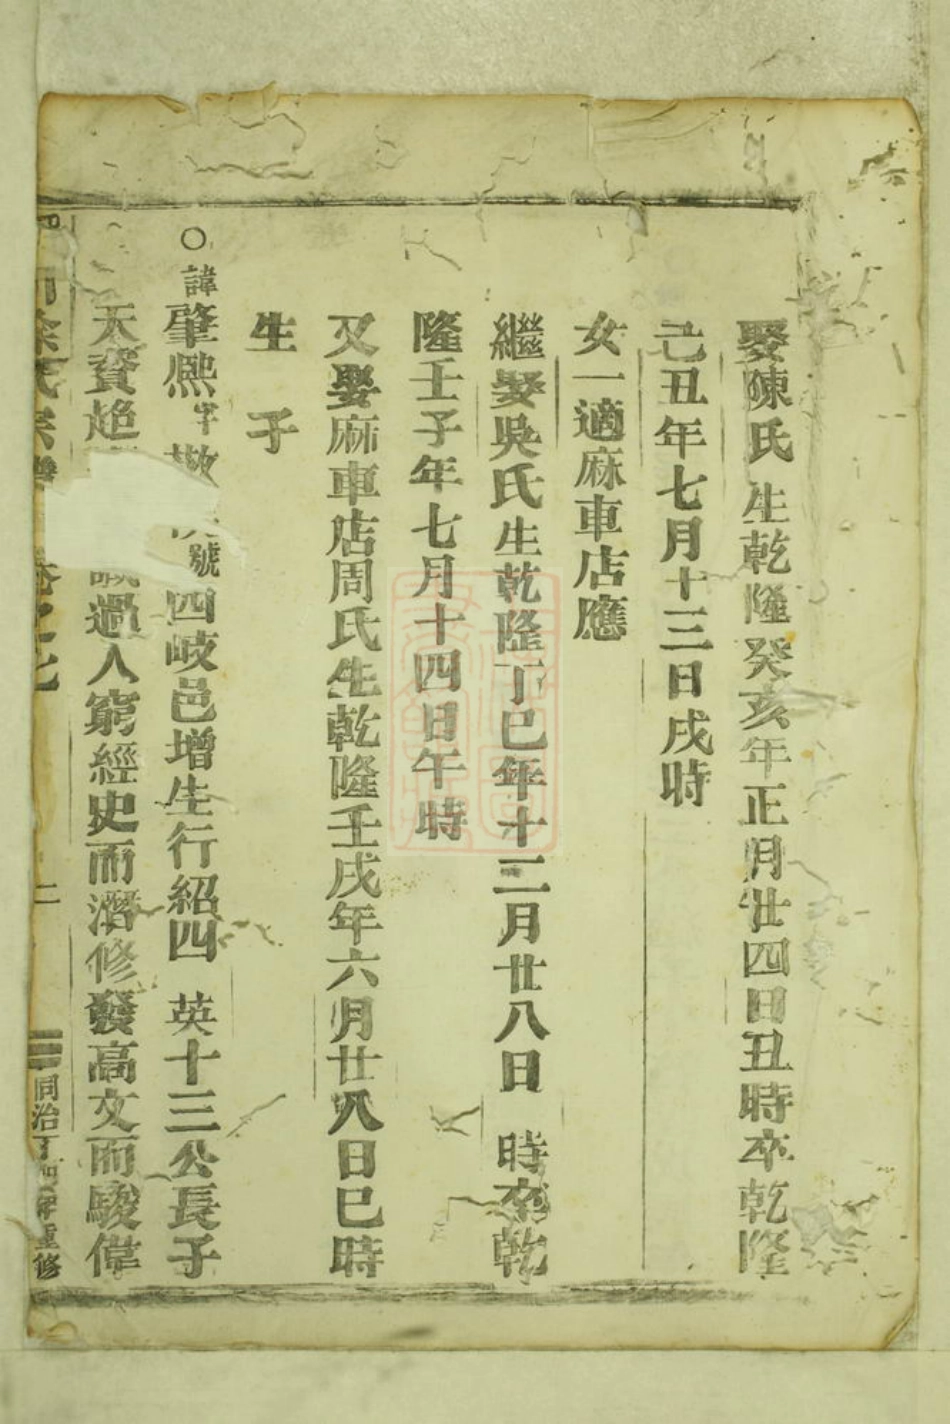 娶陳氏生乾隆癸亥年正月廿四日丑時卒乾隆
己丑年七月十三日戌時
女一適麻車店應
繼娶吳氏生乾隆丁巳年十二月廿八日 時卒乾
隆壬子年七月十四日午時
又娶麻車店周氏生乾隆壬戌年六月廿八日巳時
生 子
○諱肇熈字 號四岐邑增生行紹四 英十三公長子
天資 過人窮經史而潛修發高文而駿偉
氏宗譜 卷之七 二 同治丁卯年重修